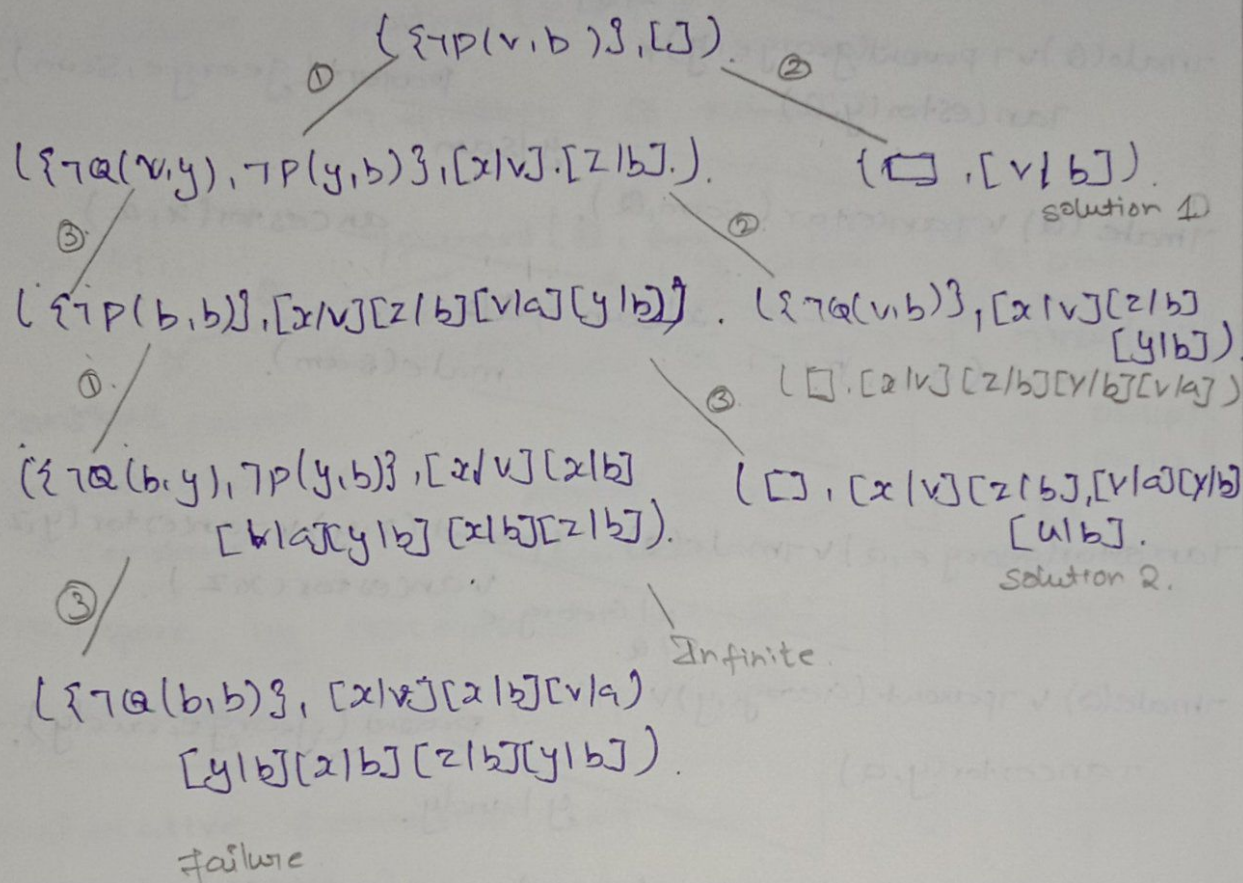 ({¬P(v,b)},[]).
① ②
({¬Q(x,y),¬P(y,b)},[x/v].[z/b].). (□,[v/b]).
solution 1
③ ②
({¬P(b,b)},[x/v][z/b][v/a][y/b]). ({¬Q(v,b)},[x/v][z/b]
[y/b])
(□.[x/v][z/b][y/b][v/a])
① ③
({¬Q(b,y),¬P(y,b)},[x/v][x/b] (□,[x/v][z/b],[v/a][y/b]
[v/a][y/b][x/b][z/b]). [u/b].
solution 2.
③
Infinite.
({¬Q(b,b)},[x/v][x/b][v/a)
[y/b][x/b][z/b][y/b]).
Failure